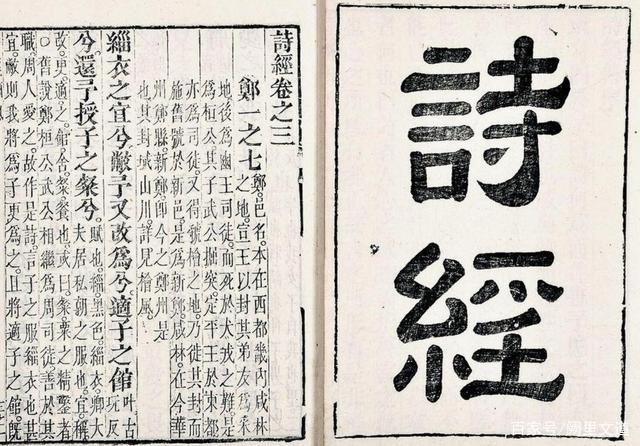 詩經
詩經卷之三
鄭一之七
鄭。邑名。本在西都畿內咸林
之地。宣王以封其弟友爲采
地後爲幽王司徒。而死於犬戎之難。是
爲桓公其子武公掘突。定平王於東都
亦爲司徒。又得虢檜之地。乃徙其封而
施舊號於新邑。是爲新鄭。咸林。在今華
州鄭縣。新鄭。卽今之鄭州是
也。其封域山川。詳見檜風。
緇衣之宜兮敝予又改爲兮適子之館
叶古
玩反
兮還予授子之粲兮。
賦也。緇。黑色。緇衣。卿大
夫居私朝之服也。宜。
改。更。適。之。館。舍。粲。餐也。或曰。粲。粟之精鑿者
○舊說鄭桓公武公相繼爲周司徒。善於其
職。周人愛之。故作是詩。言子之服緇衣也甚
宜。敝則我將爲子更爲之。且將適子之館。旣
百家号/阙里文道